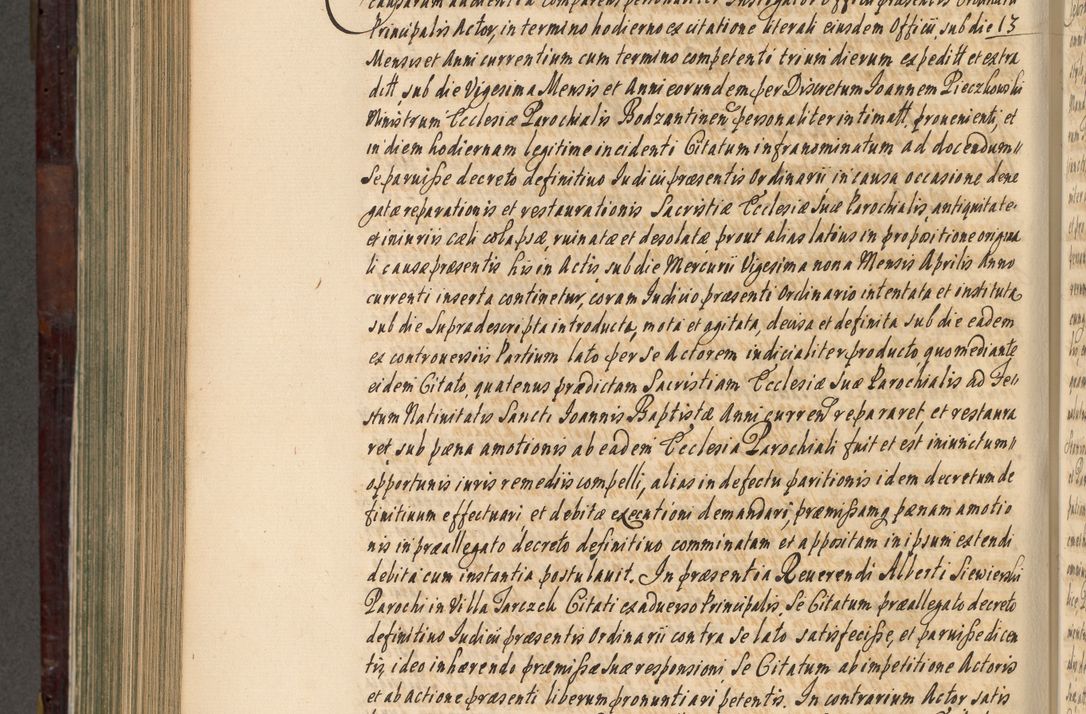 causarum audientia comparens personaliter Instigator Officii præsentis Ordinarii
Principalis Actor, in termino hodierno ex citatione literali eiusdem Officii, sub die 13
Mensis et Anni currentium cum termino competenti trium dierum expeditt et extra
ditt, sub die Vigesima Mensis et Anni eorundem per Discretum Joannem Pieczkowski
Ministrum Ecclesiæ Parochialis Bodzantinen personaliter intimatt. provenienti, et
in diem hodiernam legitime incidenti Citatum infranominatum ad docendum
Se paruisse decreto definitivo Iudicii præsentis Ordinarii in causa occasione dene
gatæ reparationis et restaurationis Sacristiæ Ecclesiæ Suæ Parochialis, antiquitate
et iniuriis cæli colapsæ, ruinatæ et desolatæ prout alias latius in propositione origina
li causæ præsentis his in Actis sub die Mercurii Vigesima nona Mensis Aprilis Anno
currenti inserta continetur, coram Iudicio præsenti Ordinario intentata et instituta
sub die Supradescripta introducta, mota et agitata, decisa et definita sub die eadem
ex controversiis Partium lato per se Actorem iudicialiter producto quo mediante
eidem Citato, quatenus prædictam Sacristiam Ecclesiæ Suæ Parochialis ad Fe
stum Nativitatis Sancti Joannis Baptistæ Anni curren repararet, et restaura
ret sub pæna amotionis ab eadem Ecclesia Parochiali fuit et est iniunctum
opportunis iuris remediis compelli, alias in defectu paritionis idem decretum de
finitivum effectuari et debitæ executioni demandari, præmissamq pænam amotio
nis in præallegato decreto definitivo comminatam et appositam in ipsum extendi
debita cum instantia postulavit. In præsentia Reverendi Alberti Siewierski
Parochi in Villa Tarczek Citati ex adverso Principalis, Se Citatum præallegato decreto
definitivo Iudicii præsentis Ordinarii contra se lato satisfecisse, et paruisse dicen
tis, ideo inhærendo præmissæ suæ responsioni Se Citatum ab impetitione Actoris
et ab actione præsenti liberum pronuntiari petentis. In contrarium Actor satis